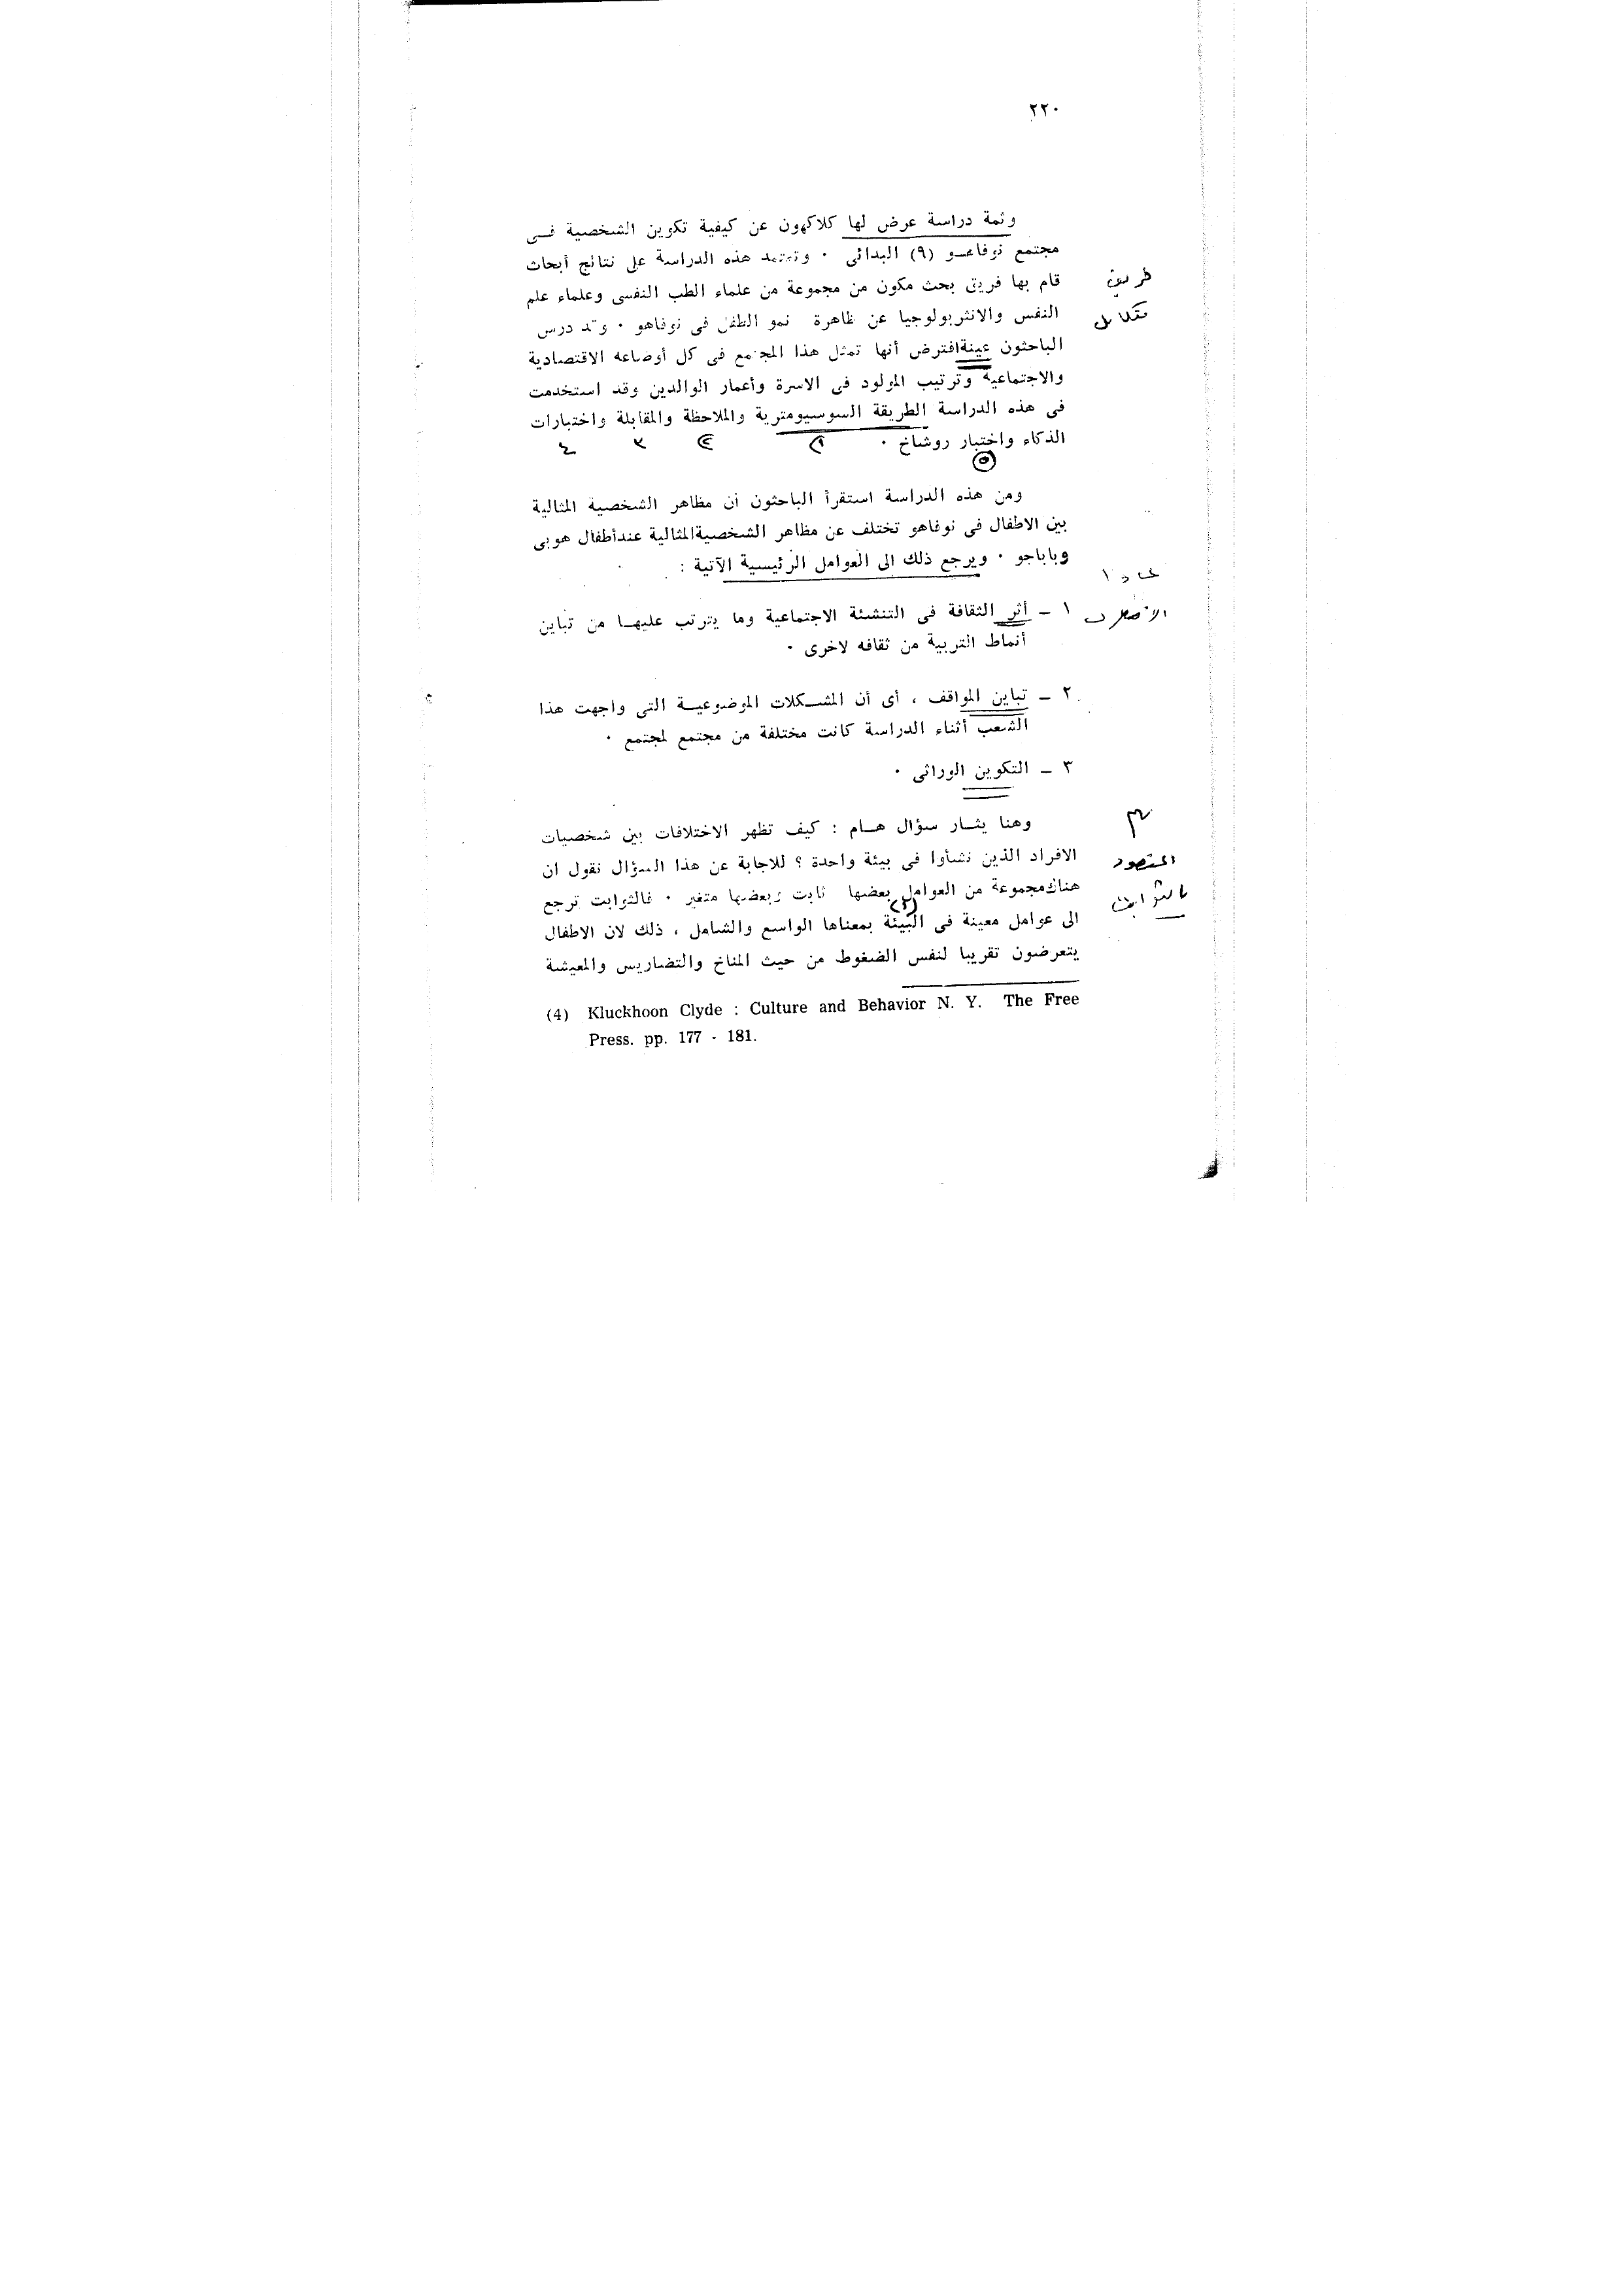 ٢٢٠
وثمة دراسة عرض لها كلاكهون عن كيفية تكوين الشخصية فـى
مجتمع نوفاهـو (٩) البدائى ٠ وتعتمد هذه الدراسة على نتائج أبحاث
قام بها فريق بحث مكون من مجموعة من علماء الطب النفسى وعلماء علم
النفس والانثربولوجيا عن ظاهرة نمو الطفل فى نوفاهو ٠ وقد درس
الباحثون عينة افترض أنها تمثل هذا المجتمع فى كل أوضاعه الاقتصادية
والاجتماعية وترتيب المولود فى الاسرة وأعمار الوالدين وقد استخدمت
فى هذه الدراسة الطريقة السوسيومترية والملاحظة والمقابلة واختبارات
الذكاء واختبار روشاخ ٠
ومن هذه الدراسة استقرأ الباحثون أن مظاهر الشخصية المثالية
بين الاطفال فى نوفاهو تختلف عن مظاهر الشخصية المثالية عند أطفال هوبى
وباباجو ٠ ويرجع ذلك الى العوامل الرئيسية الآتية :
١ ـ أثر الثقافة فى التنشئة الاجتماعية وما يترتب عليهـا من تباين
أنماط التربية من ثقافه لاخرى ٠
٢ ـ تباين المواقف ، أى أن المشـكلات الموضوعيـة التى واجهت هذا
الشعب أثناء الدراسة كانت مختلفة من مجتمع لمجتمع ٠
٣ ـ التكوين الوراثى ٠
وهنا يثـار سؤال هـام : كيف تظهر الاختلافات بين شخصيات
الافراد الذين نشأوا فى بيئة واحدة ؟ للاجابة عن هذا السؤال نقول ان
هناك مجموعة من العوامل بعضها ثابت وبعضها متغير ٠ فالثوابت ترجع
الى عوامل معينة فى البيئة بمعناها الواسع والشامل ، ذلك لان الاطفال
يتعرضون تقريبا لنفس الضغوط من حيث المناخ والتضاريس والمعيشة
المقصود
بالثوابت
(4) Kluckhoon Clyde : Culture and Behavior N. Y. The Free
Press. pp. 177 - 181.